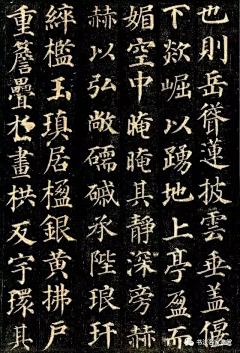 也則岳聳蓮披雲垂蓋偃
下欻崛以踴地上亭盈而
媚空中晻晻其靜深旁赫
赫以弘敞礝磩承陛琅玕
綷檻玉瑱居楹銀黃拂戶
重簷疊於畫栱反宇環其